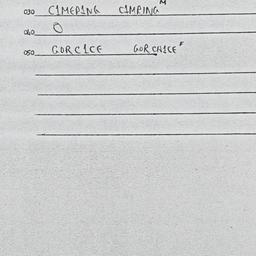 030 CIMEPING CIMPING M
040 O
050 GORCICE GORCHICE F